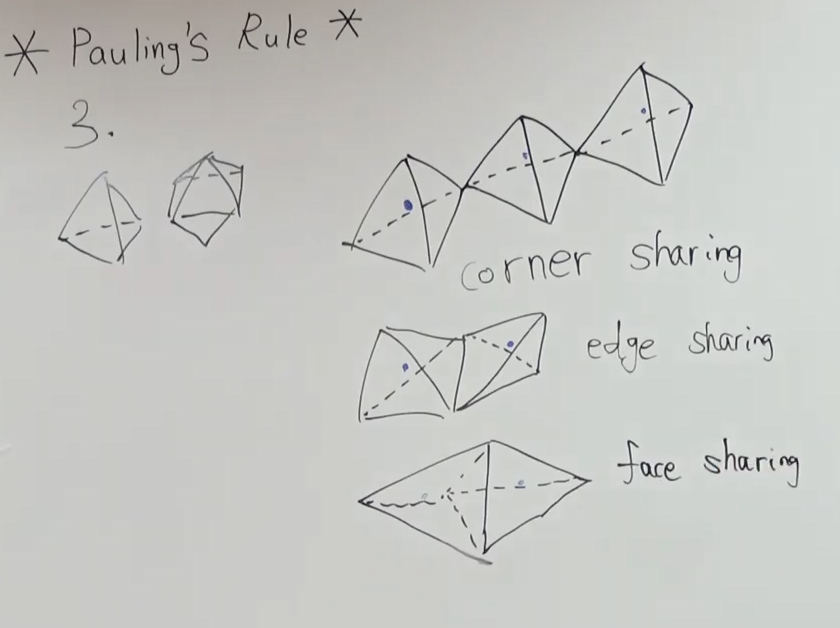 * Pauling's Rule *
3.
corner sharing
edge sharing
face sharing